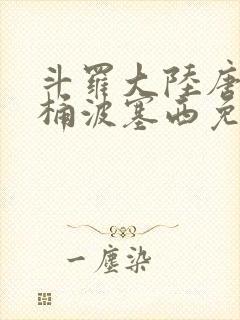 斗羅大陸唐
桶波塞西免
一塵染